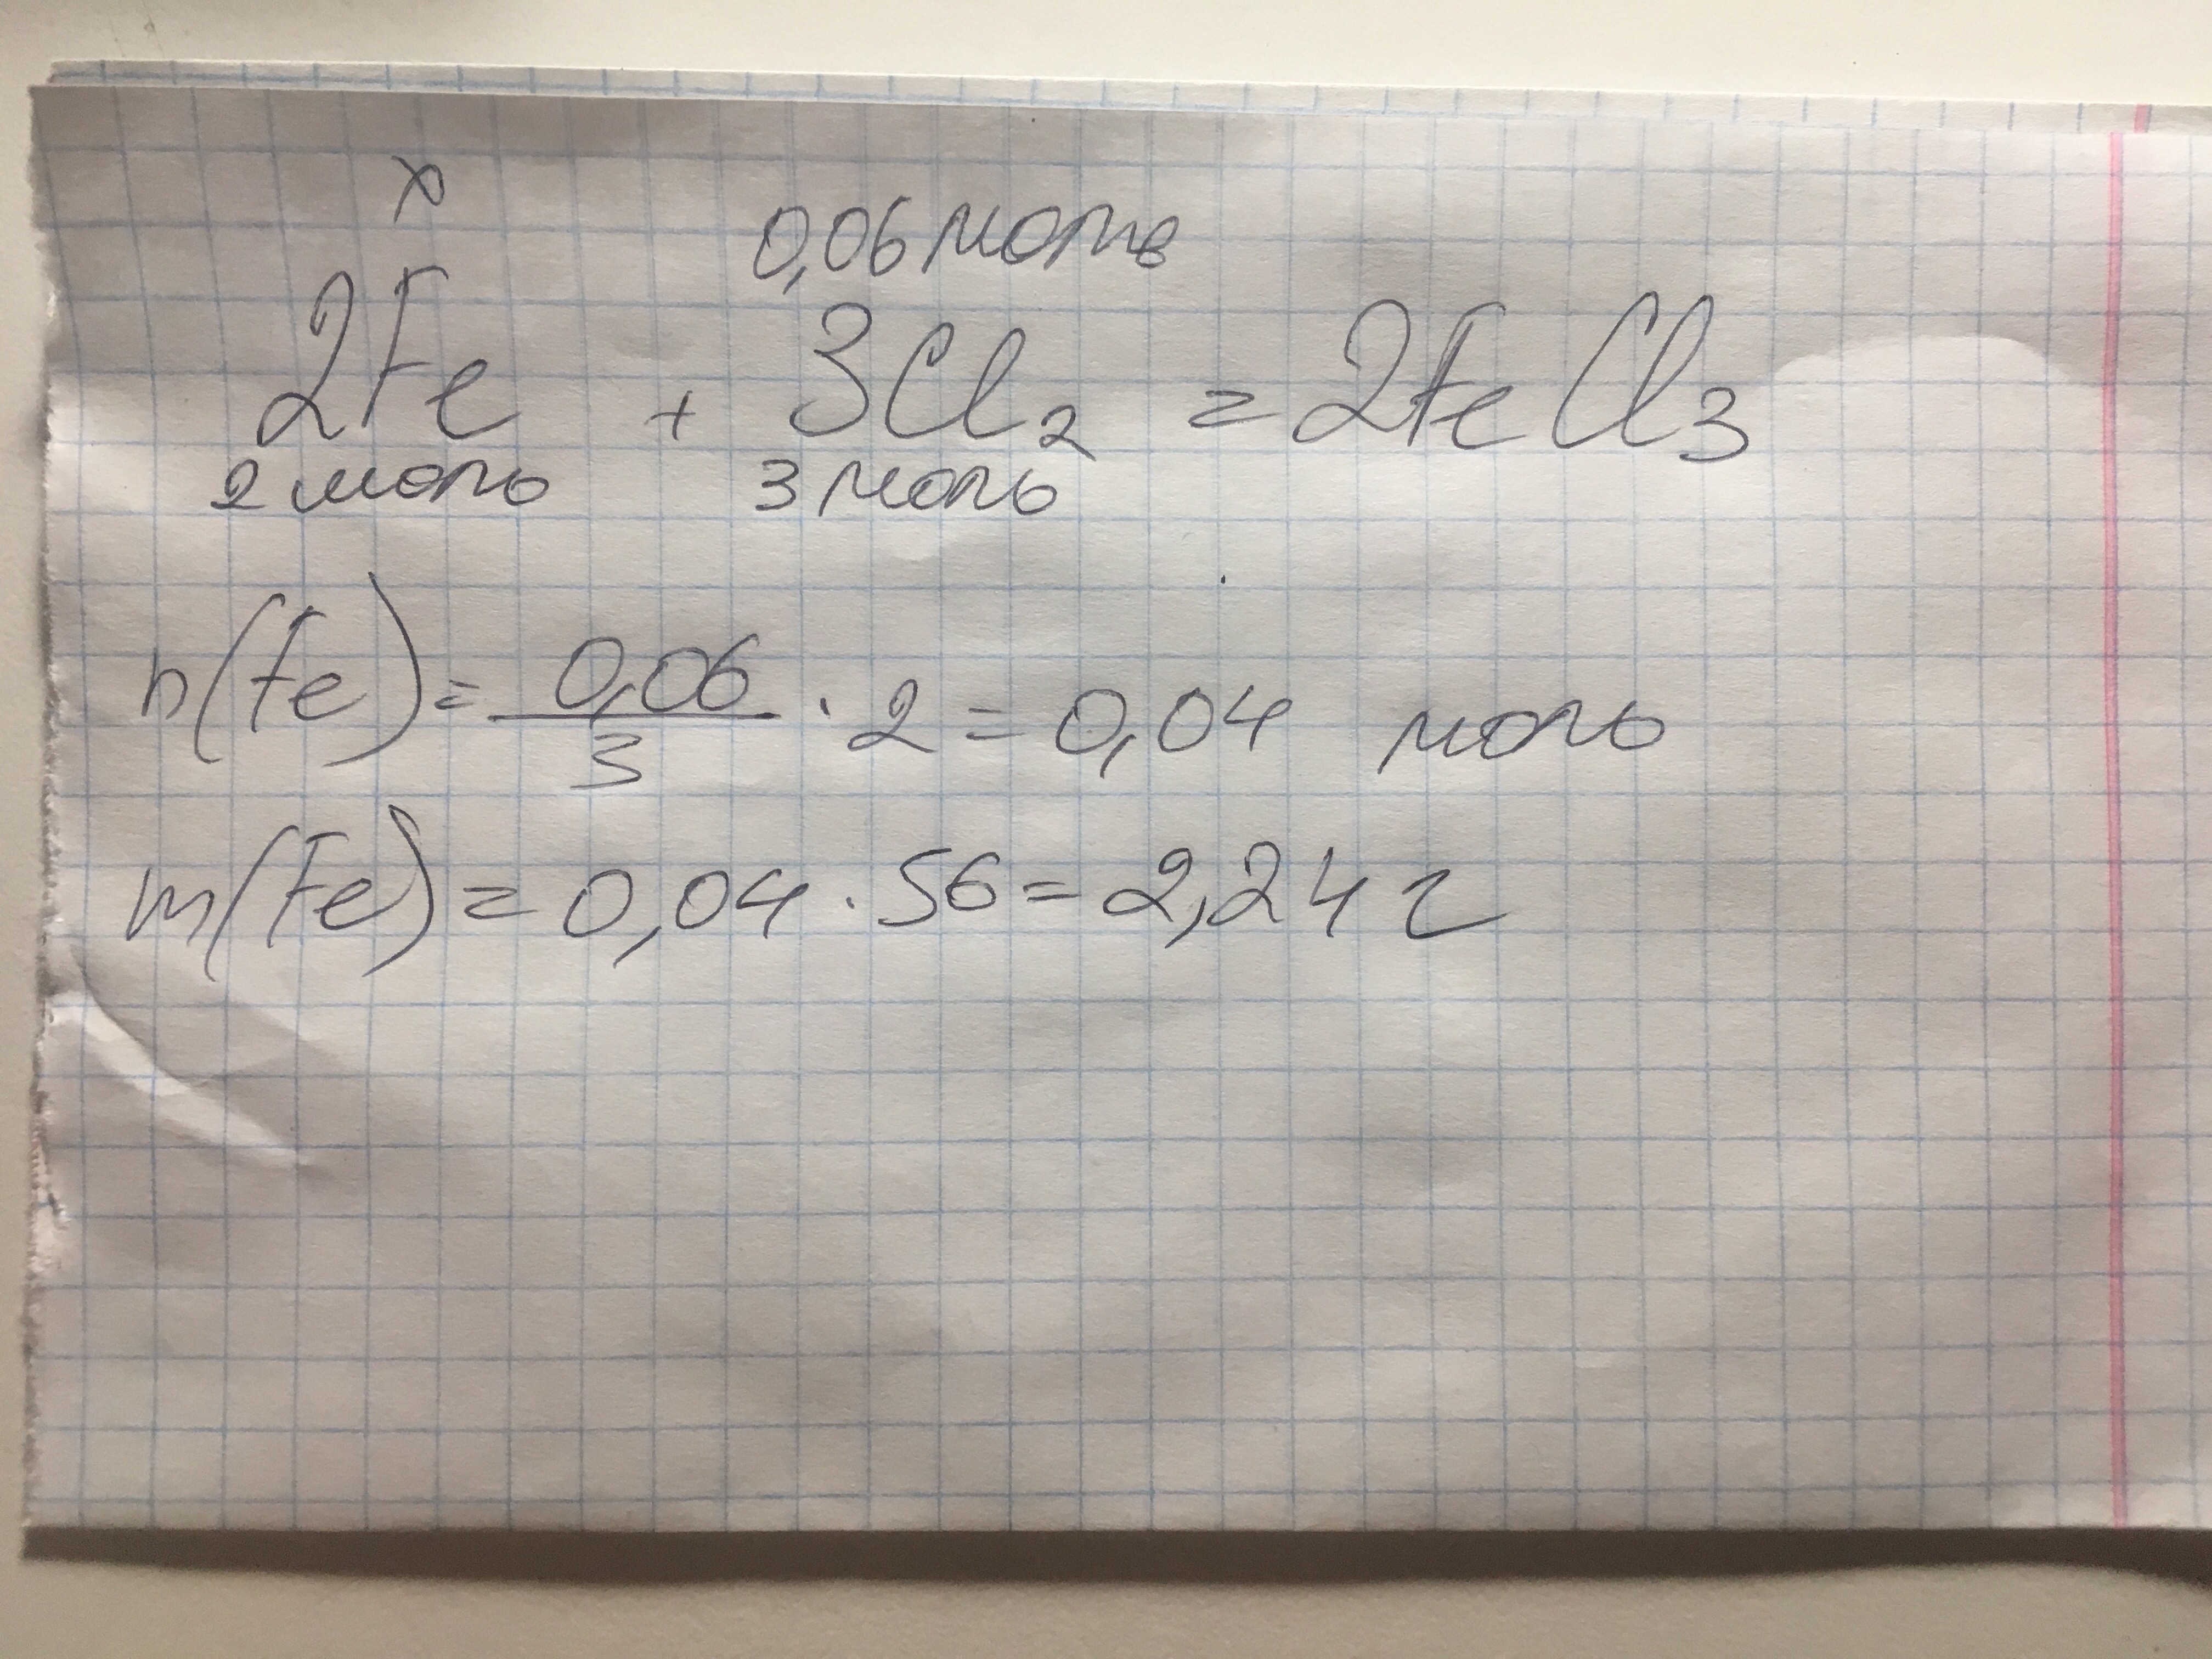 x
0,06 моль
2Fe + 3Cl₂ = 2FeCl₃
2 моль 3 моль
n(Fe) = 0,06/3 · 2 = 0,04 моль
m(Fe) = 0,04 · 56 = 2,24 г